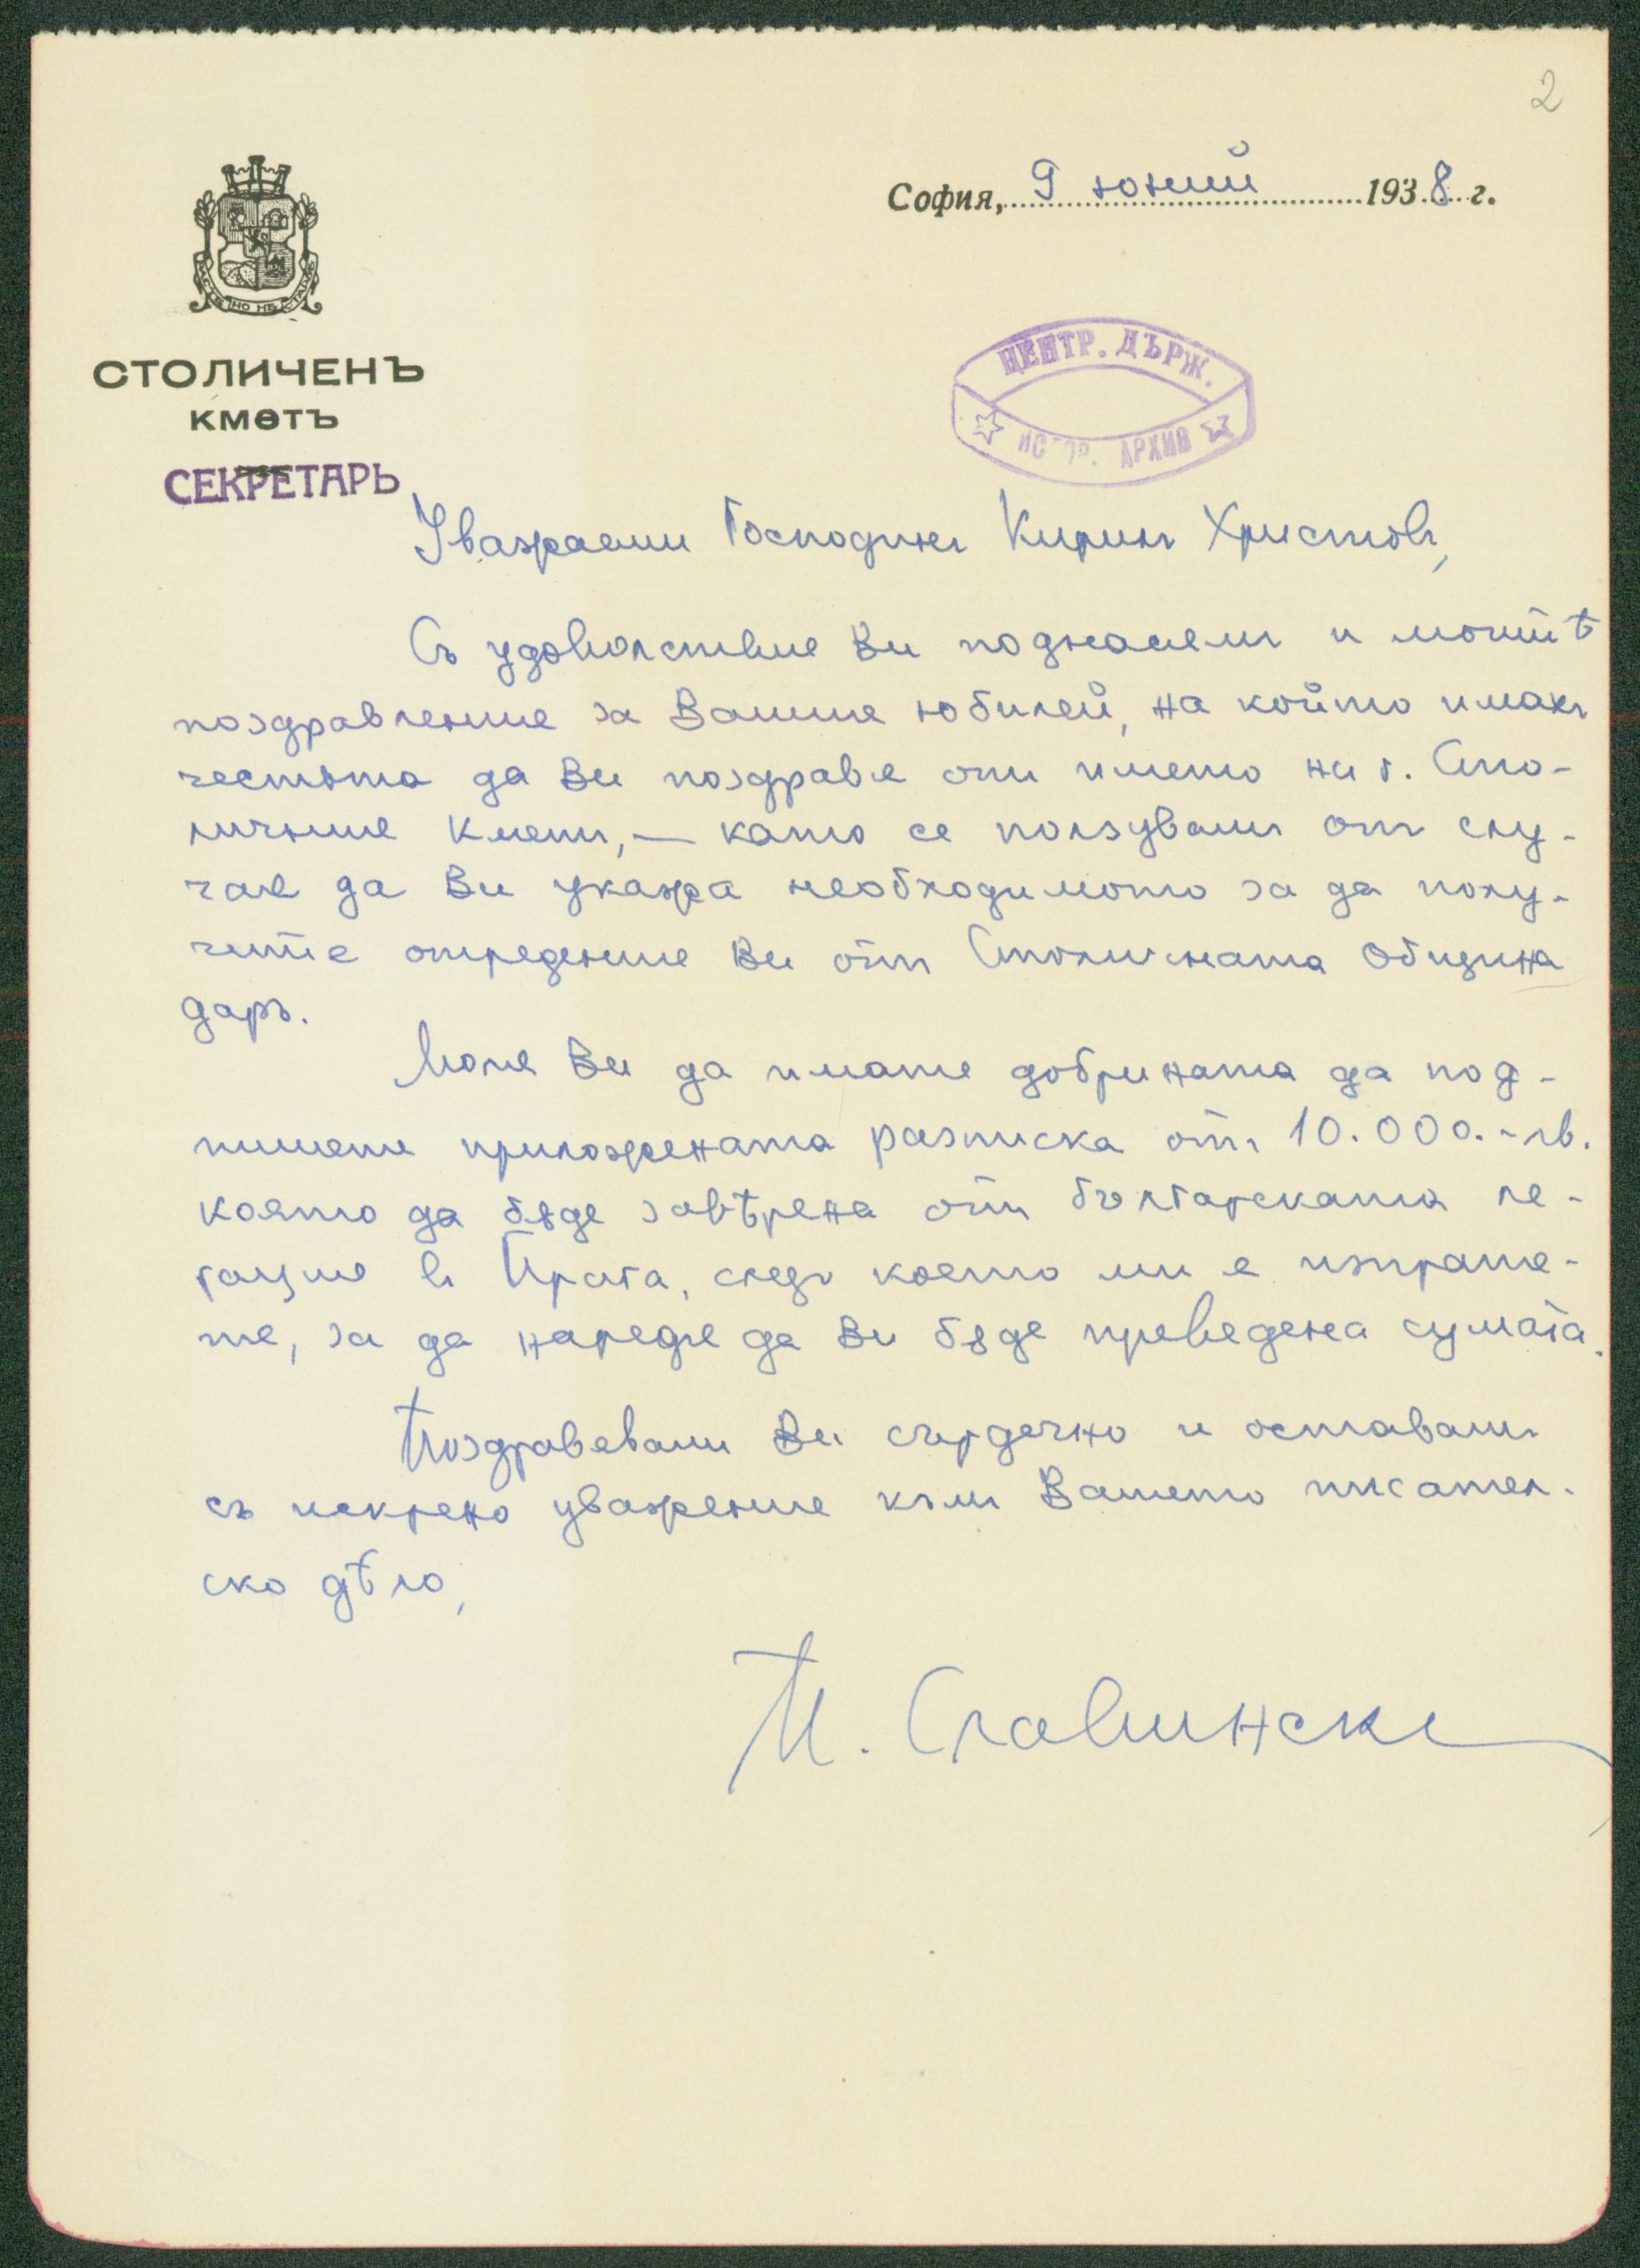 2
София, 9 юний 1938 г.
СТОЛИЧЕНЪ
КМЕТЪ
СЕКРЕТАРЬ
ЦЕНТР. ДЪРЖ.
ИСТОР. АРХИВ
Уважаеми Господинъ Кирилъ Христовъ,
Съ удоволствие Ви поднасямъ и моитѣ
поздравления за Вашия юбилей, на който имахъ
честьта да Ви поздравя отъ името на г. Сто-
личния Кметъ, — като се ползувамъ отъ слу-
чая да Ви укажа необходимото за да полу-
чите опредѣления Ви отъ Столичната Община
даръ.
Моля Ви да имате добрината да под-
пишете приложената разписка отъ 10.000.- лв.
която да бѫде завѣрена отъ българската ле-
гация въ Прага, следъ което ми я изпрате-
те, за да наредя да Ви бѫде преведена сумата.
Поздравявамъ Ви сърдечно и оставамъ
съ искрено уважение къмъ Вашето писател-
ско дѣло,
П. Славински